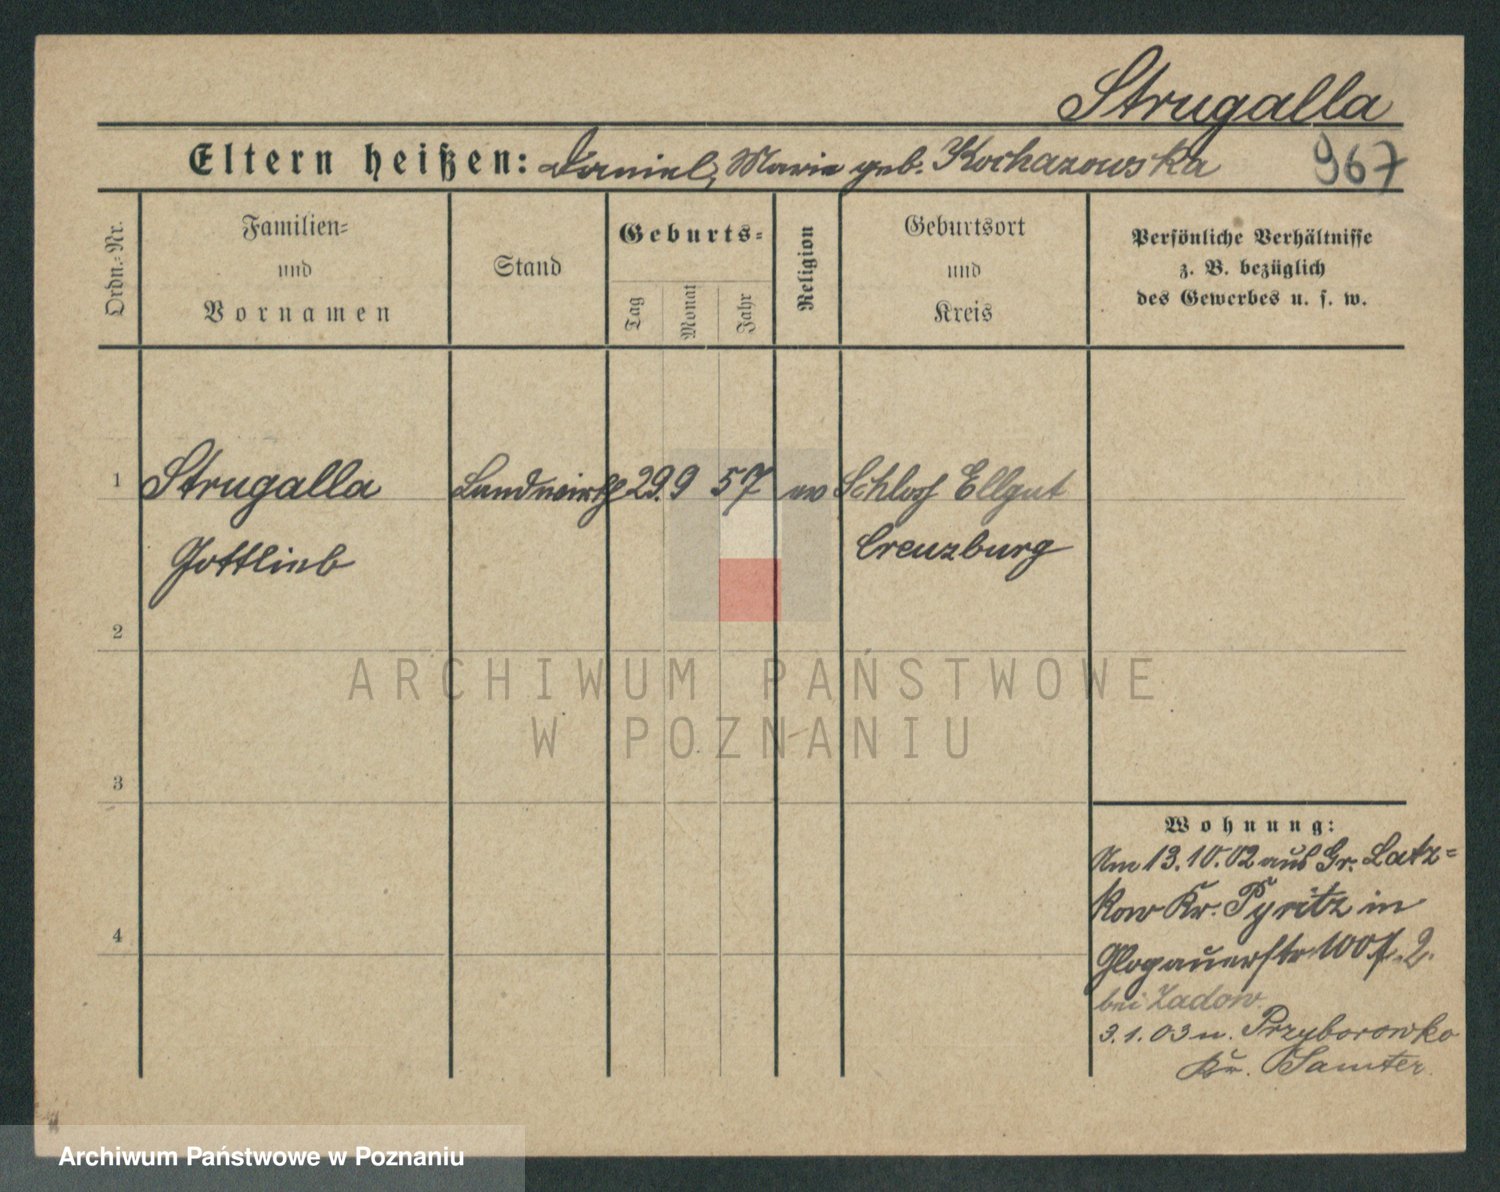 Strugalla
Eltern heißen: Daniel, Marie geb. Kochanowska
967
Ordn.-Nr.
Familien-
und
Vornamen
Stand
Geburts-
Tag
Monat
Jahr
Religion
Geburtsort
und
Kreis
Persönliche Verhältnisse
z. B. bezüglich
des Gewerbes u. s. w.
1
Strugalla
Gottlieb
Landwirth
29. 9 57
ev
Schloss Ellgut
Creuzburg
2
ARCHIWUM PAŃSTWOWE
W POZNANIU
3
4
Wohnung:
Am 13.10.02 aus Gr. Latz=
kow Kr. Pyritz in
Glogauerstr 100
bei Zadow.
3.1.03 n. Przyborowko
Kr. Samter.
Archiwum Państwowe w Poznaniu